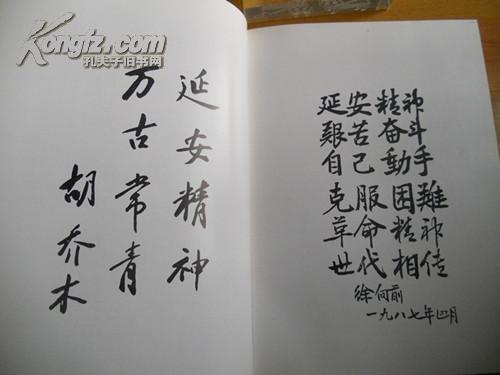 Kongfz.com
孔夫子旧书网
延安精神
万古常青
胡乔木
延安精神
艰苦奋斗
自己動手
克服困難
革命精神
世代相传
徐向前
一九八七年四月